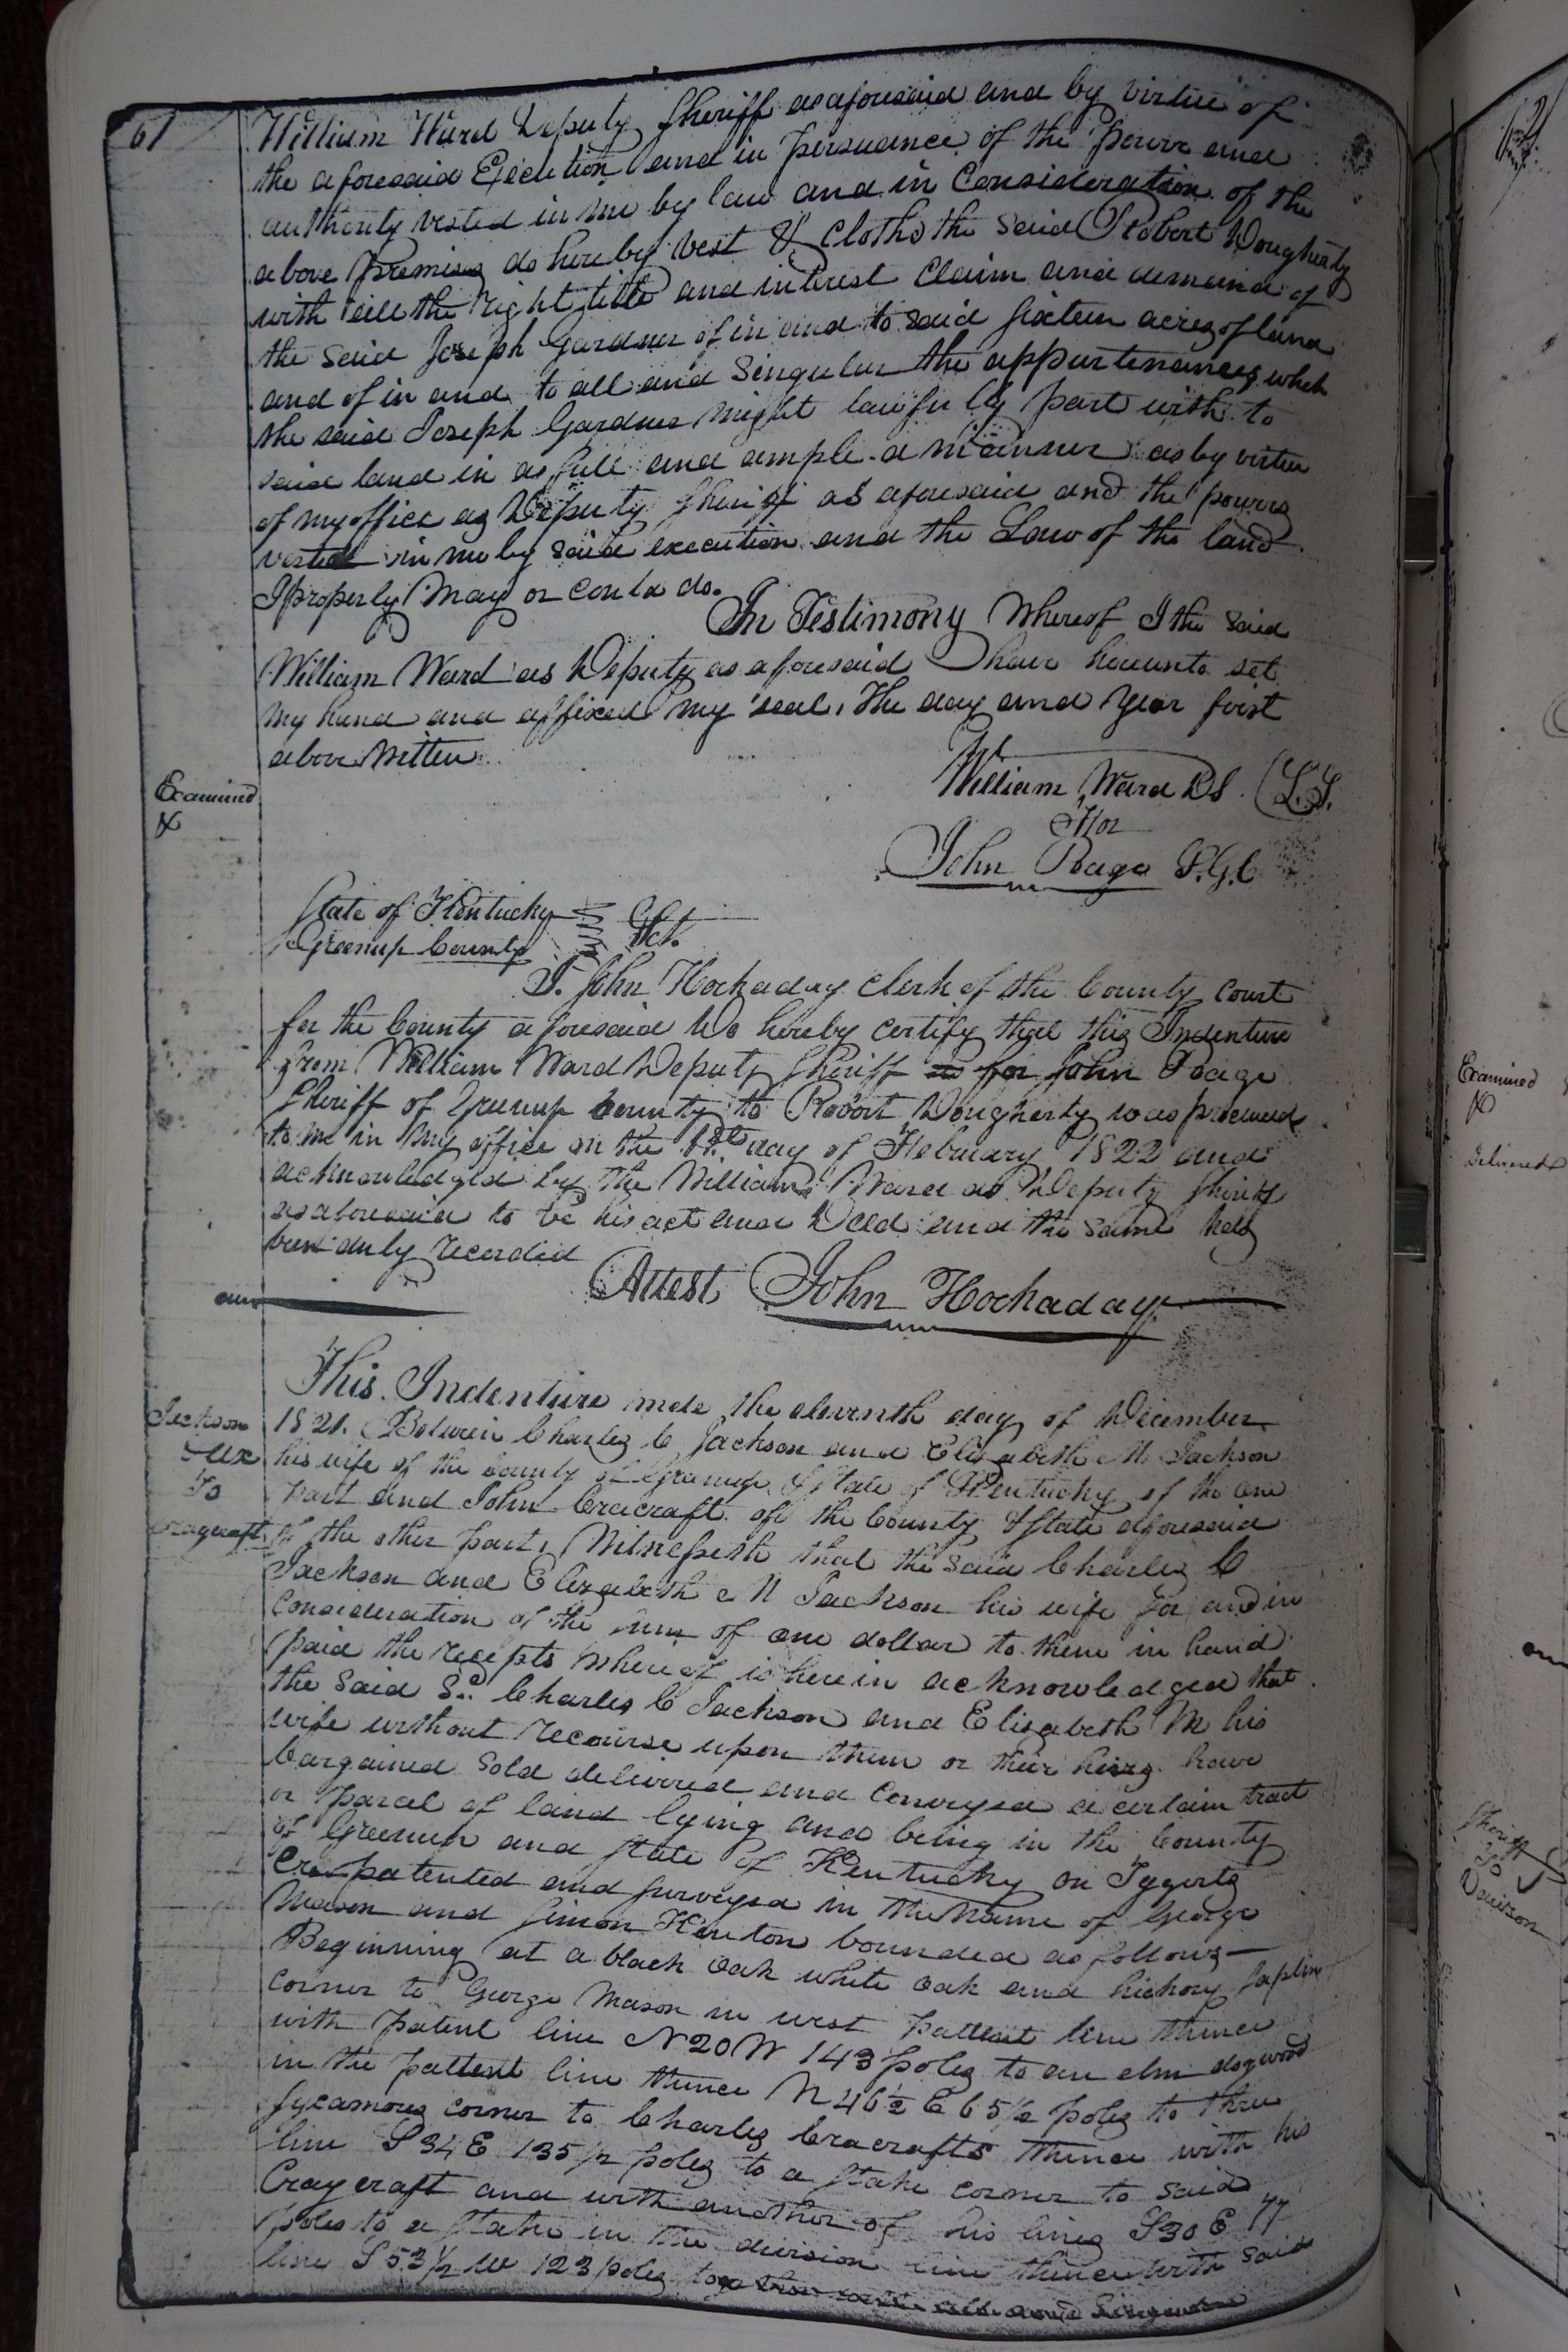 61
William Ward Deputy Sheriff as aforesaid and by virtue of
the aforesaid Execution and in persuance of the power and
authority vested in me by law and in Consideration of the
above premises do hereby vest & Cloths the said Robert Dougherty
with all the right title and interest Claim and demand of
the said Joseph Gardner of in and to said sixteen acres of land
and of in and to all and Singular the appurtenances which
the said Joseph Gardner might lawfully part with to
said land in as full and ample a manner as by virtue
of my office as Deputy Sheriff as aforesaid and the powers
vested in me by said execution and the Law of the land
I properly may or could do.
In Testimony Whereof I the said
William Ward as Deputy as aforesaid have hereunto set
my hand and affixed my seal, the day and year first
above written
William Ward DS (L.S.
For
John Poage S.G.C
Examined
X
State of Kentucky
Greenup County Sct.
I. John Hockaday Clerk of the County Court
for the County aforesaid Do hereby certify that this Indenture
from William Ward Deputy Sheriff for John Poage
Sheriff of Greenup County to Robert Dougherty was produced
to me in my office on the day of February 1822 and
acknowledged by the William Ward as Deputy Sheriff
as aforesaid to be his act and Deed and the same has
been duly recorded
Attest John Hockaday
This Indenture made the eleventh day of December
1821. Between Charles C Jackson and Elizabeth M Jackson
his wife of the County of Greenup & State of Kentucky of the one
part and John Cracraft of the County & State aforesaid
of the other part, Witnesseth that the said Charles C
Jackson and Elizabeth M Jackson his wife for and in
Consideration of the sum of one dollar to them in hand
paid the recepts whereof is herein acknowledged that
the said Charles C Jackson and Elizabeth M his
wife without recourse upon them or their heirs have
bargained Sold delivered and Conveyed a certain tract
or parcel of land lying and being in the County
of Greenup and State of Kentucky on Tygerts
Cr patented and surveyed in the name of George
Mason and Simon Kenton bounded as follows—
Beginning at a black oak white oak and hickory saplin
corner to George Mason in west pattent line thence
with patent line N20W 143 poles to an elm dogwood
in the pattent line thence N46½ E 65½ poles to three
Sycamores corner to Charles Cracrafts thence with his
line S34E 135½ poles to a stake corner to said
Craycraft and with another of his lines S30E 77
poles to a stake in the division line thence with said
line S53½ W 123 poles together with all and Singular
Jackson
&ux
To
Cragcraft
Examined
X
Delivered
Sheriff
To
Davison